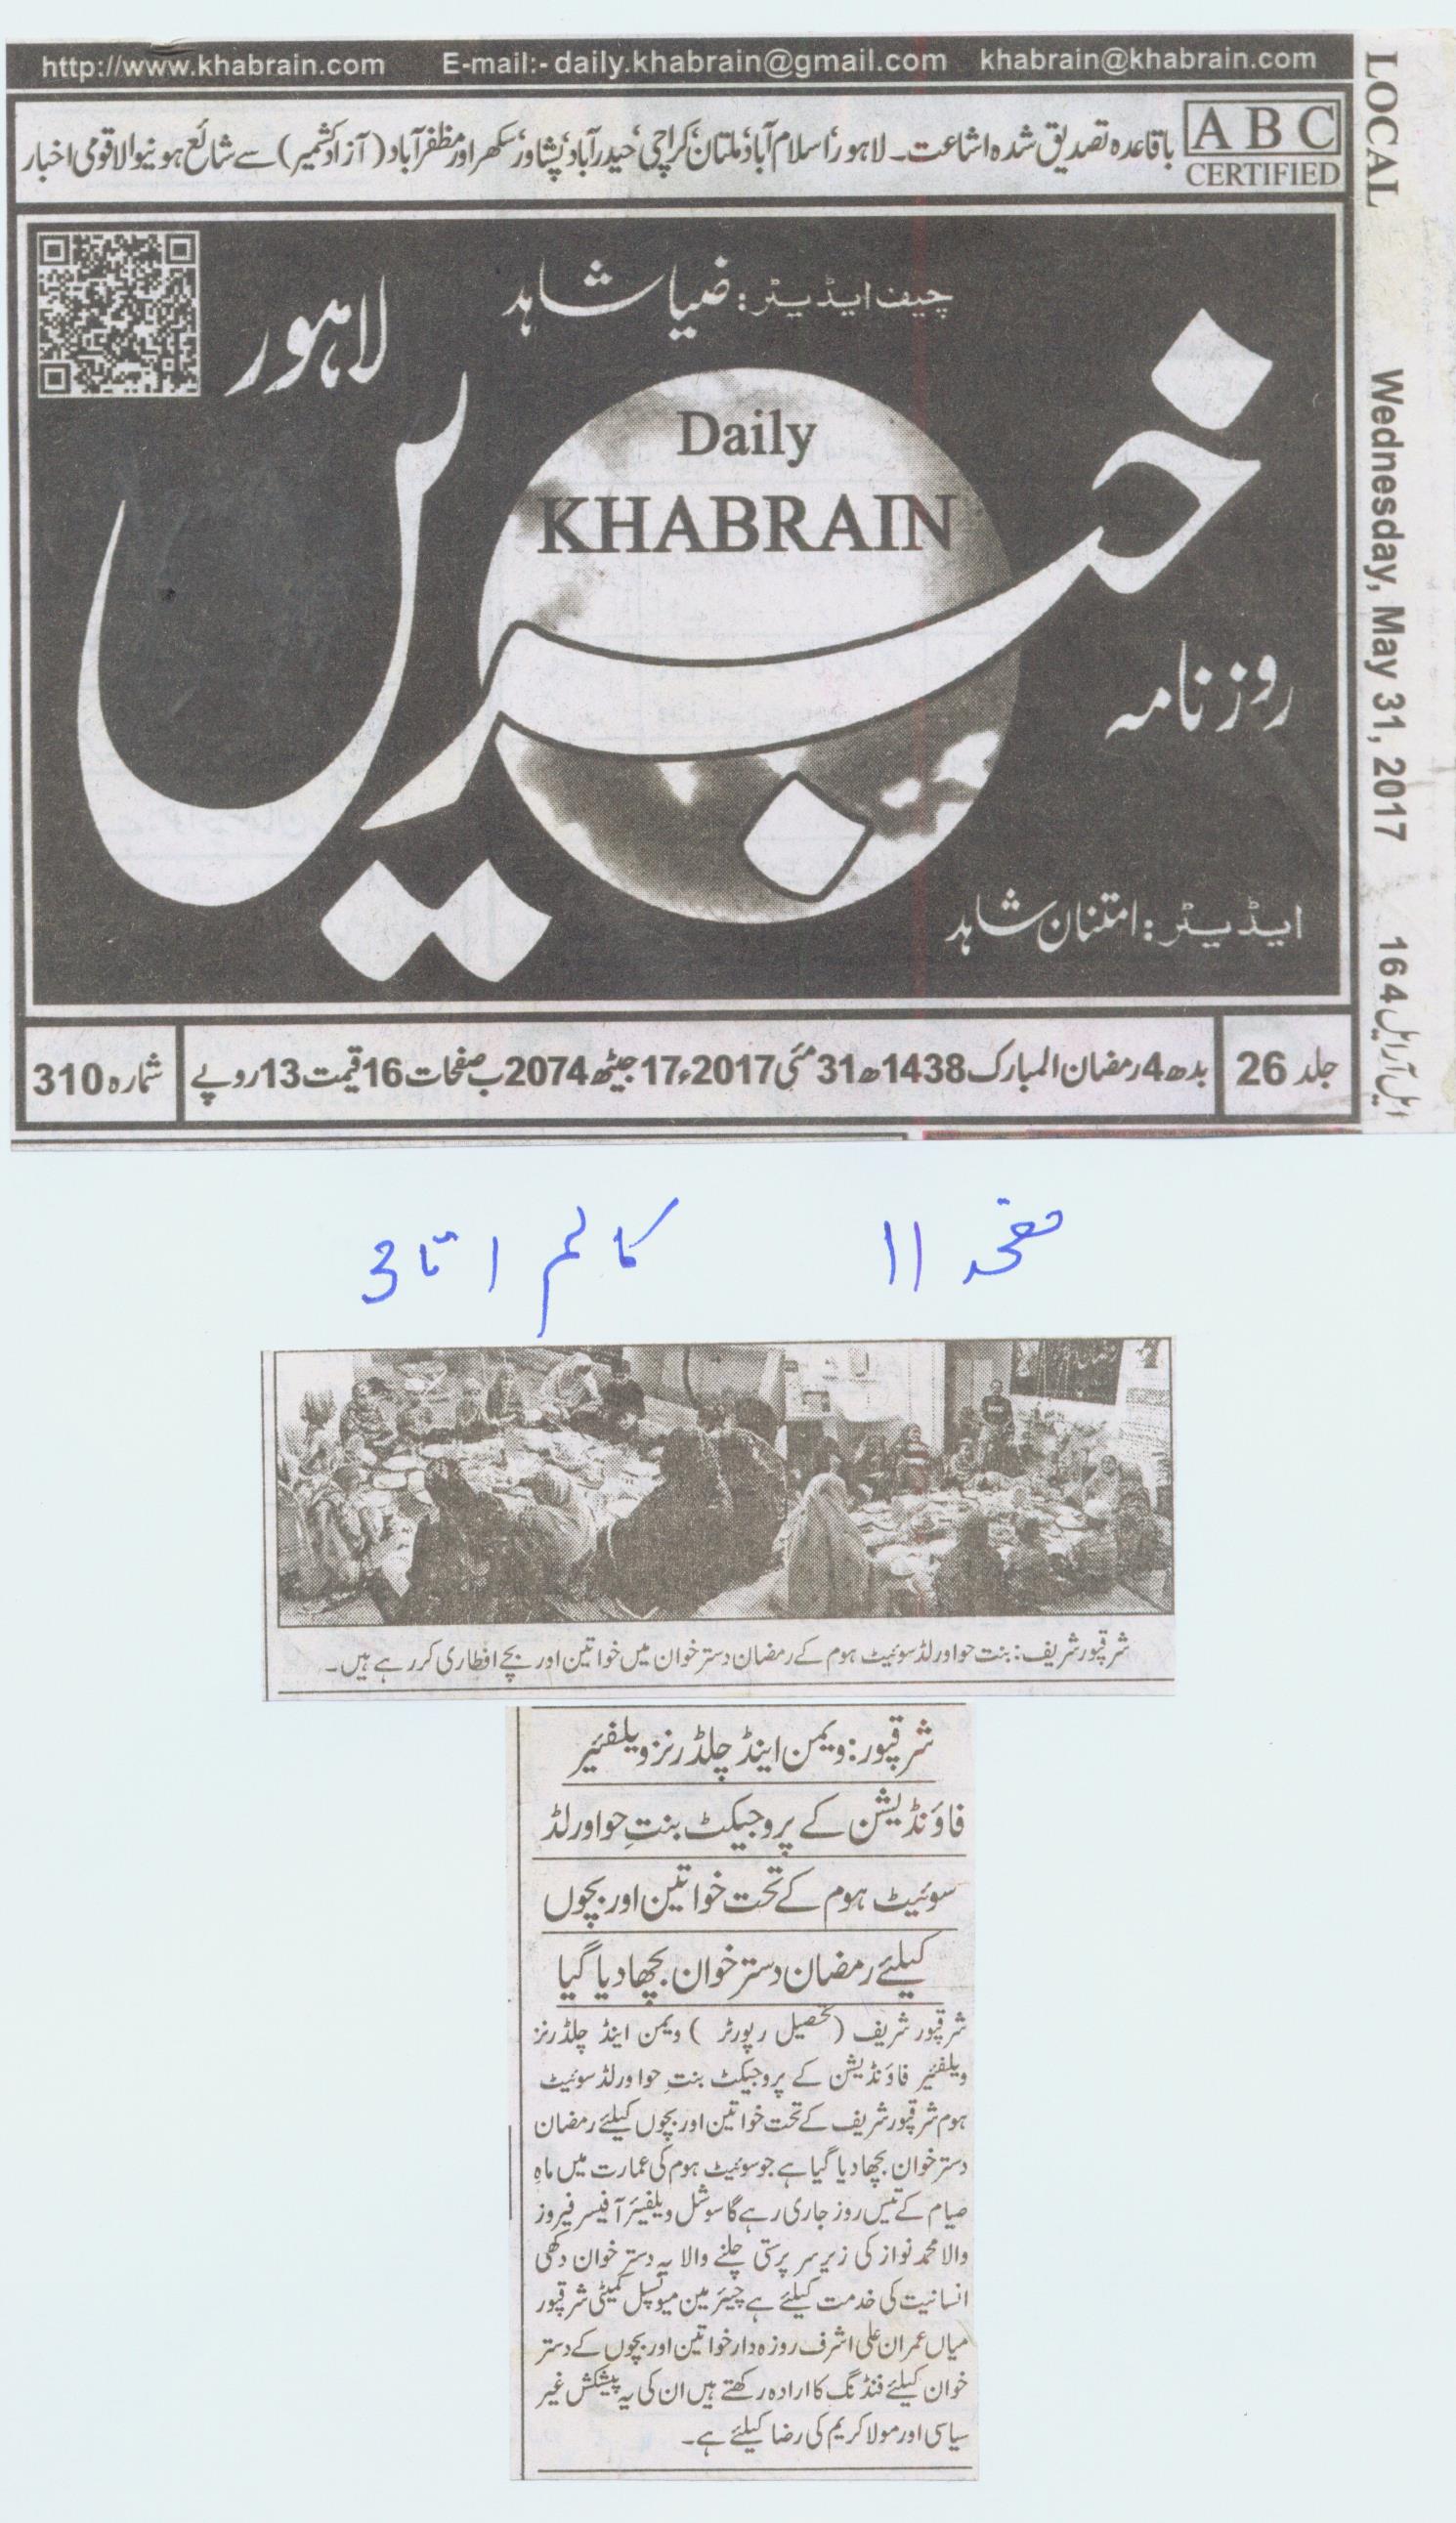 http://www.khabrain.com E-mail:- daily.khabrain@gmail.com khabrain@khabrain.com
LOCAL
ABC
CERTIFIED
باقاعدہ تصدیق شدہ اشاعت۔ لاہور، اسلام آباد، ملتان، کراچی، حیدرآباد، پشاور، سکھر اور مظفرآباد (آزاد کشمیر) سے شائع ہونیوالا قومی اخبار
چیف ایڈیٹر: ضیا شاہد
لاہور
Daily
KHABRAIN
خبریں
روزنامہ
ایڈیٹر: امتنان شاہد
Wednesday, May 31, 2017
ایل آر ایل 164
جلد 26
بدھ 4 رمضان المبارک 1438ھ 31 مئی 2017ء 17 جیٹھ 2074 ب صفحات 16 قیمت 13 روپے
شمارہ 310
صفحہ 11 کالم 1 تا 3
شرقپور شریف: بنت حوا ورلڈ سوئیٹ ہوم کے رمضان دستر خوان میں خواتین اور بچے افطاری کر رہے ہیں۔
شرقپور: ویمن اینڈ چلڈرنز ویلفئیر
فاؤنڈیشن کے پروجیکٹ بنتِ حوا ورلڈ
سوئیٹ ہوم کے تحت خواتین اور بچوں
کیلئے رمضان دستر خوان بچھا دیا گیا
شرقپور شریف (تحصیل رپورٹر) ویمن اینڈ چلڈرنز
ویلفئیر فاؤنڈیشن کے پروجیکٹ بنتِ حوا ورلڈ سوئیٹ
ہوم شرقپور شریف کے تحت خواتین اور بچوں کیلئے رمضان
دستر خوان بچھا دیا گیا ہے جو سوئیٹ ہوم کی عمارت میں ماہِ
صیام کے تیس روز جاری رہے گا سوشل ویلفیئر آفیسر فیروز
والا محمد نواز کی زیر سر پرستی چلنے والا یہ دستر خوان دکھی
انسانیت کی خدمت کیلئے ہے چیئر مین میونسپل کمیٹی شرقپور
میاں عمران علی اشرف روزہ دار خواتین اور بچوں کے دستر
خوان کیلئے فنڈنگ کا ارادہ رکھتے ہیں ان کی یہ پیشکش غیر
سیاسی اور مولا کریم کی رضا کیلئے ہے۔